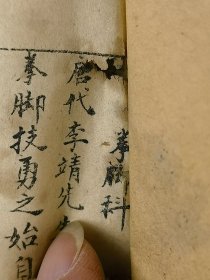 拳脚科
唐代李靖先生
拳脚技勇之始自